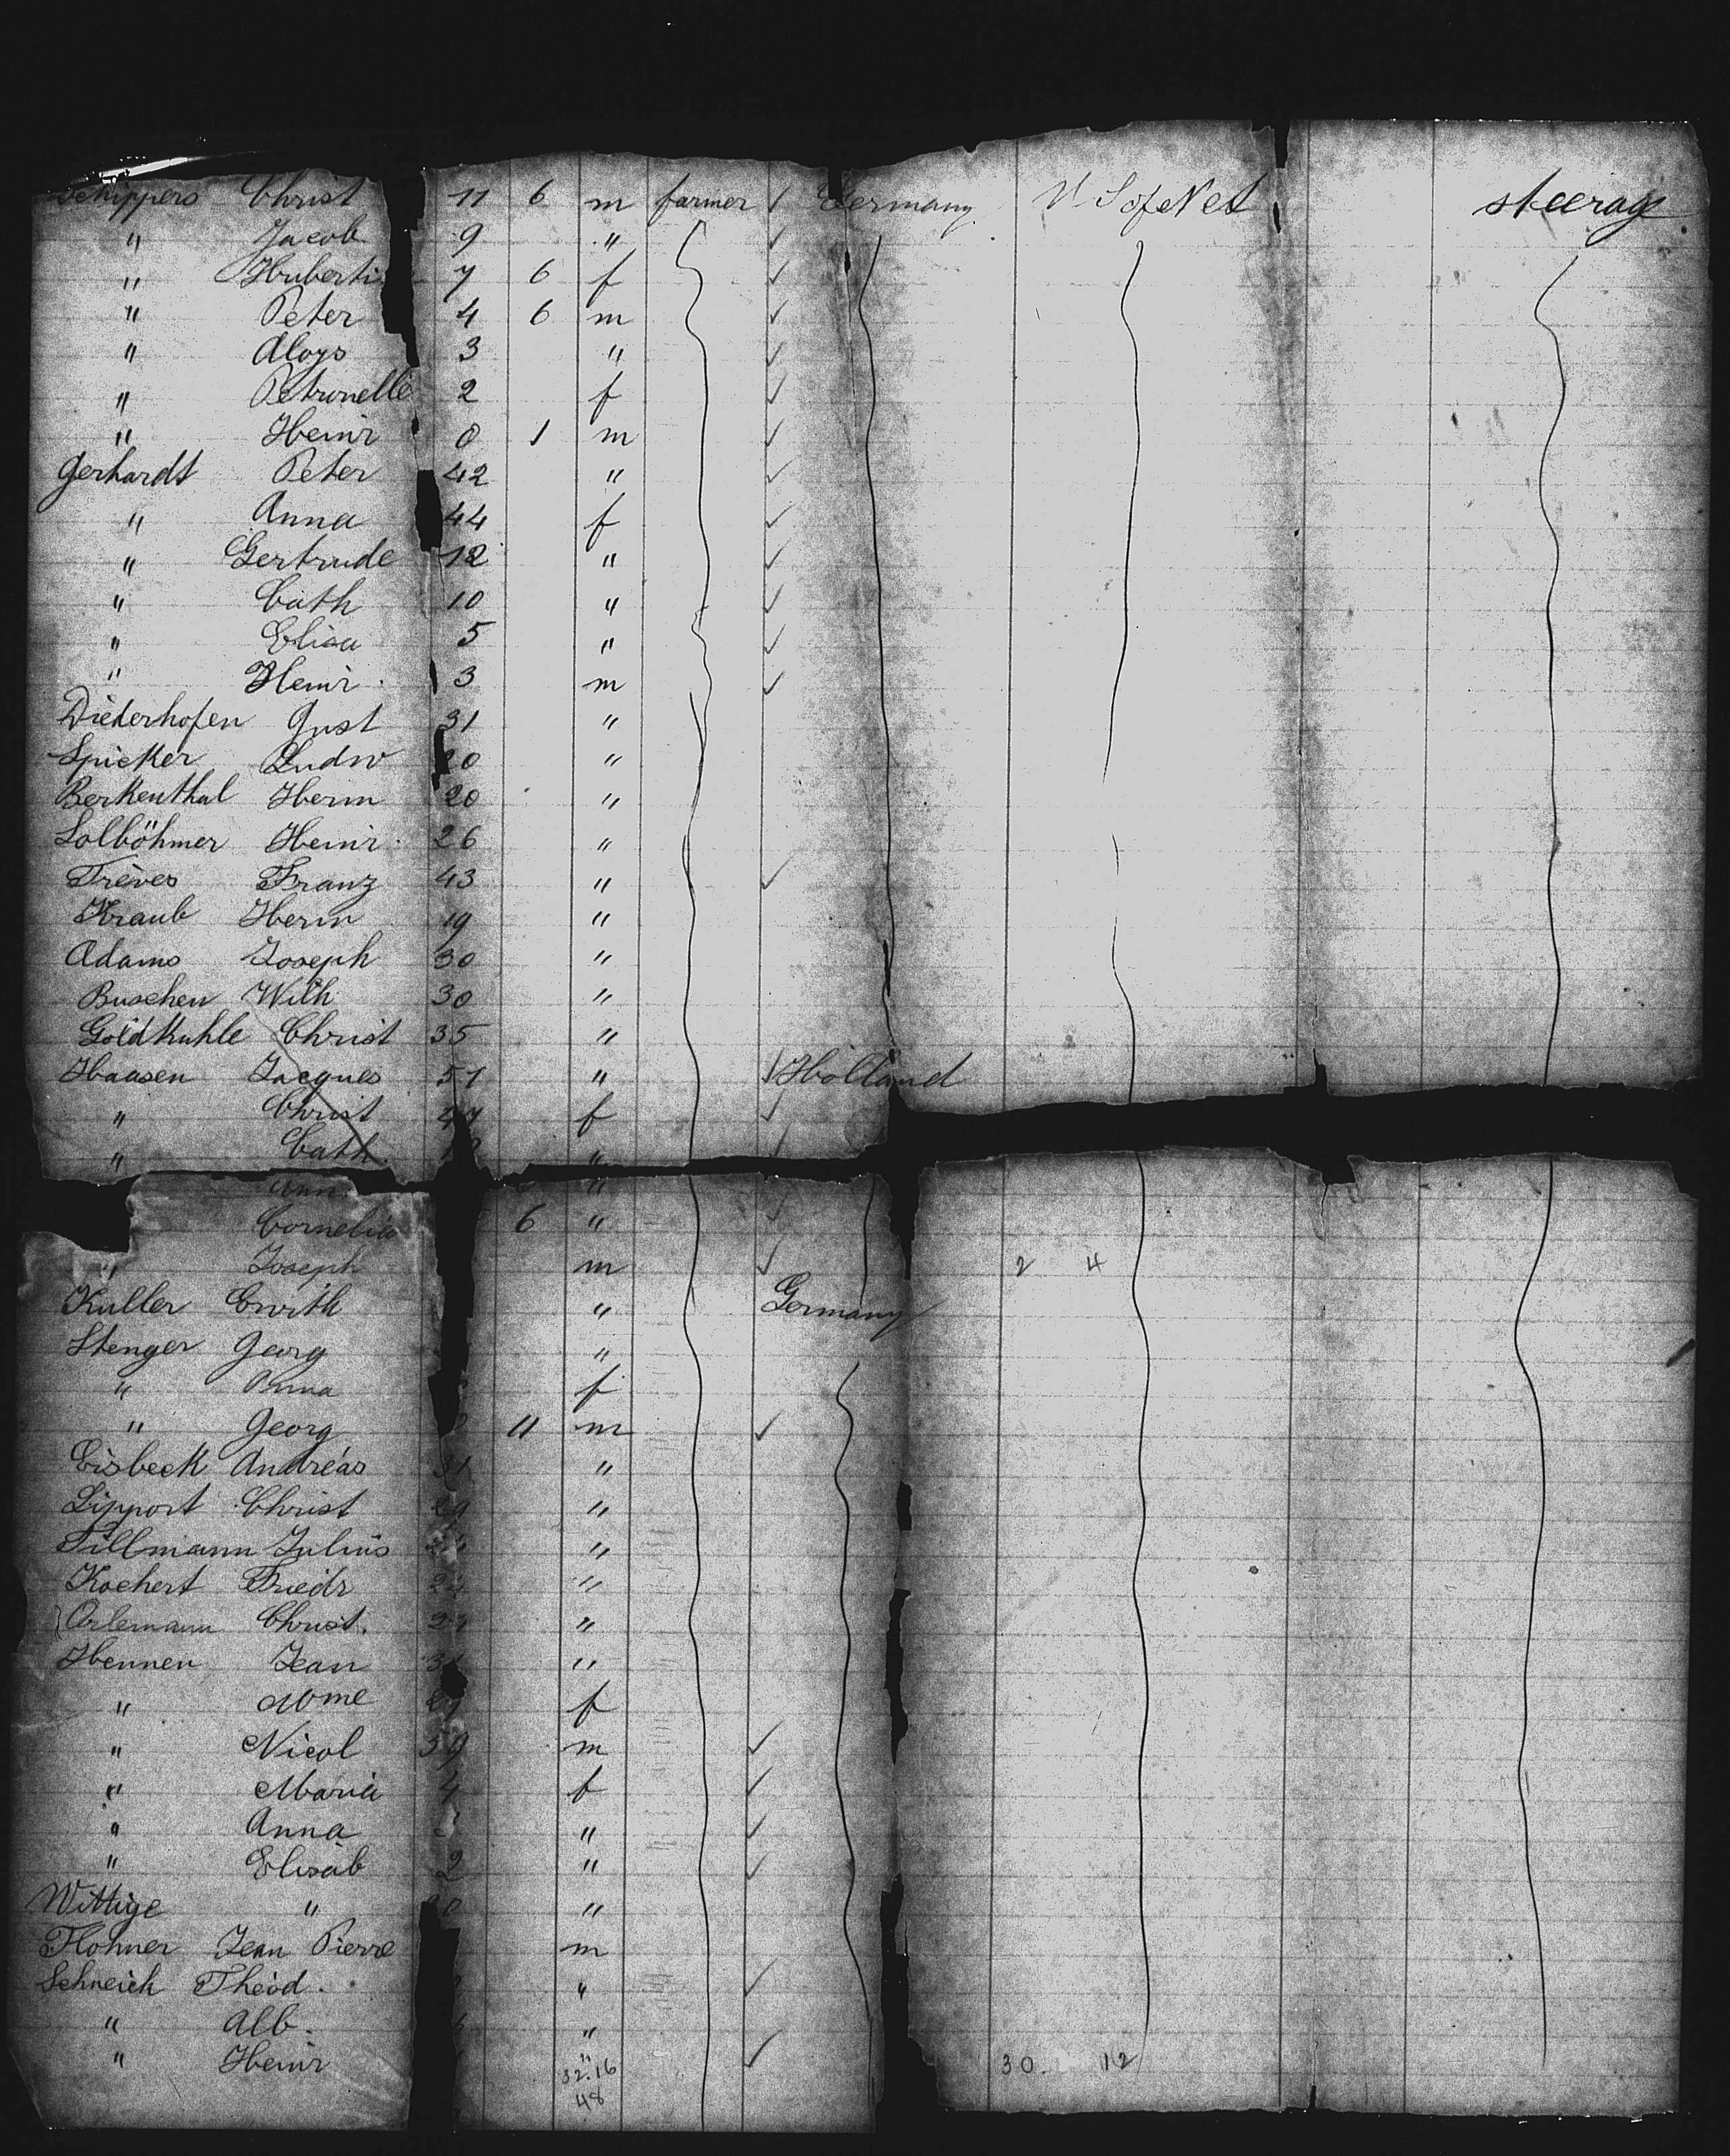 Schippers Christ 11 6 m farmer ✓ Germany U S of N et steerage
" Jacob 9 " ✓
" Huberti 7 6 f ✓
" Peter 4 6 m ✓
" Aloys 3 " ✓
" Petronelle 2 f ✓
" Heinr 0 1 m ✓
Gerhardt Peter 42 " ✓
" Anna 44 f ✓
" Gertrude 12 " ✓
" Cath 10 " ✓
" Elisa 5 " ✓
" Heinr. 3 m ✓
Diederhofen Gust 31 "
Spicker Ludw 20 "
Berkenthal Herm 20 "
Solböhmer Heinr. 26 "
Treves Franz 43 " ✓
Kraub Herm 19 "
Adams Joseph 30 "
Buschen Wilh 30 "
Goldkuhle Christ 35 "
Haasen Jacques 51 " ✓ Holland
" Christ f ✓
" Cath. " ✓
Ann "
Cornelia 6 " ✓
" Joseph m ✓ 2 4
Kuller " Germany
Stenger Georg "
" Anna f
" Georg 11 m ✓
Eisbeck Andreas 31 "
Lipport Christ 29 "
Tillmann Julius "
Kochert Friedr 24 "
Orlemann Christ. "
Hennen Jean "
" Mme f
" Nicol m ✓
" Maria 4 f ✓
" Anna " ✓
" Elisab 2 " ✓
Wittige " "
Flohner Jean Pierre m
Schneich Theod. " ✓
" Alb. "
" Heinr " ✓ 30. 12
32.16
48